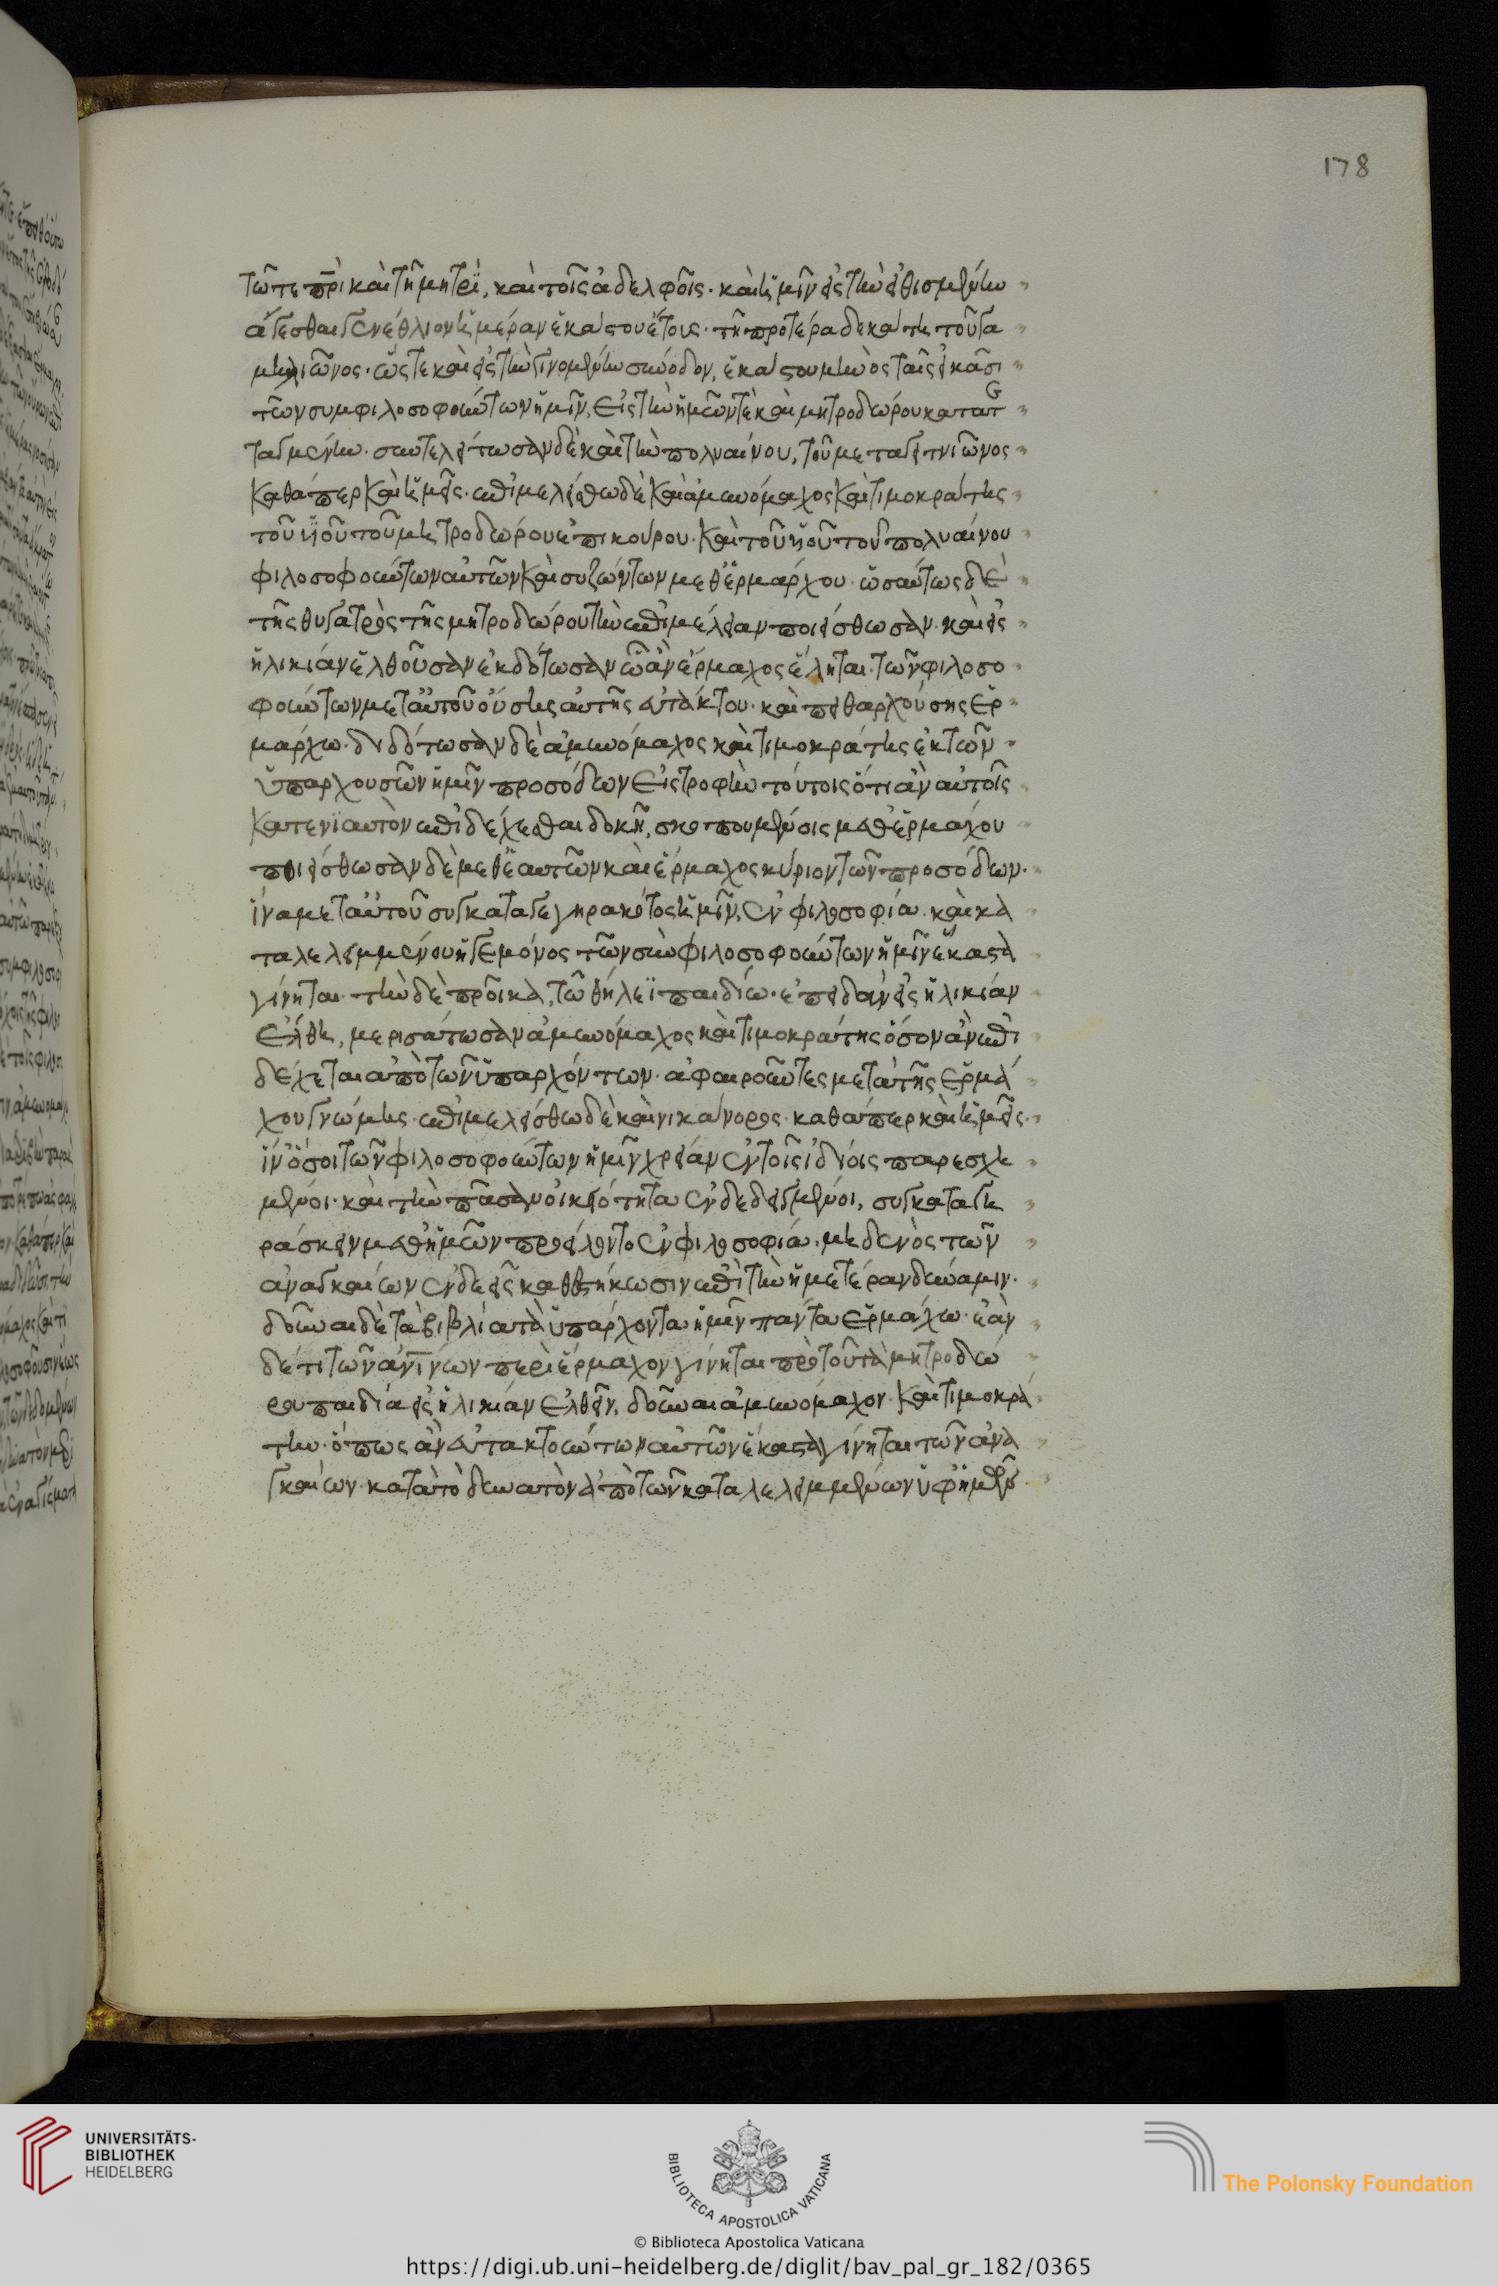 178
τῶ τε πρὶ καὶ τῆ μητρὶ, καὶ τοῖς ἀδελφοῖς· καὶ ἡμῖν εἰς τὴν εἰθισμένην
ἄγεσθαι γενέθλιον ἡμέραν ἑκάστου ἔτους· τῆ προτέρα δεκάτη τοῦ γα
μηλιῶνος· ὥστε καὶ εἰς τὴν γινομένην σύνοδον, ἑκάστου μηνὸς ταῖς εἰκάσι
τῶν συμφιλοσοφούντων ἡμῖν, εἰς τὴν ἡμῶν τὲ καὶ μητροδώρου κατατε
ταγμένην· συντελείτωσαν δὲ καὶ τὴν πολυαίνου, τοῦ μεταγειτνιῶνος
καθάπερ καὶ ἡμεῖς· ἐπιμελείσθω δὲ καὶ ἀμυνόμαχος καὶ τιμοκράτης
τοῦ ὑϊοῦ τοῦ μητροδώρου ἐπικούρου· καὶ τοῦ ὑϊοῦ τοῦ πολυαίνου
φιλοσοφούντων αὐτῶν καὶ συζώντων μεθ' ἑρμάρχου· ὡσαύτως δὲ
τῆς θυγατρὸς τῆς μητροδώρου τὴν ἐπιμέλειαν ποιείσθωσαν· καὶ εἰς
ἡλικίαν ἐλθοῦσαν ἐκδότωσαν ὧ ἂν ἕρμαχος ἕληται· τῶν φιλοσο
φούντων μετ' αὐτοῦ οὔσης αὐτῆς εὐτάκτου· καὶ πειθαρχούσης ἑρ
μάρχω· διδότωσαν δὲ ἀμυνόμαχος καὶ τιμοκράτης ἐκ τῶν
ὑπαρχουσῶν ἡμῖν προσόδων εἰς τροφὴν τούτοις ὅτι ἂν αὐτοῖς
κατενϊαυτὸν ἐπιδέχεσθαι δοκῆ, σκοπουμένοις μεθ' ἑρμάχου
ποιείσθωσαν δὲ μεθ' ἑαυτῶν καὶ ἕρμαχος κύριον τῶν προσόδων·
ἵνα μετ' αὐτοῦ συγκαταγεγηρακότος ἡμῖν, ἐν φιλοσοφία· καὶ κα
ταλελειμμένου ἡγεμόνος τῶν σὺν φιλοσοφούντων ἡμῖν ἕκαστα
γίνηται· τὴν δὲ προῖκα, τῶ θήλεϊ παιδίω· ἐπειδὰν εἰς ἡλικίαν
ἔλθη, μερισάτωσαν ἀμυνόμαχος καὶ τιμοκράτης ὅσον ἂν ἐπι
δέχηται ἀπὸ τῶν ὑπαρχόντων· ἀφαιροῦντες μετὰ τῆς ἑρμά
χου γνώμης· ἐπιμελείσθω δὲ καὶ νικάνορος· καθάπερ καὶ ἡμεῖς·
ἵν' ὅσοι τῶν φιλοσοφούντων ἡμῖν χρείαν ἐν τοῖς ἰδίοις παρεσχη
μένοι· καὶ τὴν πᾶσαν οἰκειότητα ἐνδεδειγμένοι, συγκαταγη
ράσκειν μεθ' ἡμῶν προείλοντο ἐν φιλοσοφία· μηδενὸς τῶν
ἀναγκαίων ἐνδεεῖς καθεστήκωσιν ἐπὶ τὴν ἡμετέραν δύναμιν·
δοῦναι δὲ τὰ βιβλία τὰ ὑπάρχοντα ἡμῖν πάντα ἑρμάχω· ἐὰν
δέ τι τῶν ἀνῑνων περὶ ἕρμαχον γίνηται πρὸ τοῦ τὰ μητροδώ
ρου παιδία εἰς ἡλικίαν ἐλθεῖν, δοῦναι ἀμυνόμαχον· καὶ τιμοκρά
την· ὅπως ἂν εὐτακτούντων αὐτῶν ἕκαστα γίνηται τῶν ἀνα
γκαίων· κατὰ τὸ δυνατὸν ἀπὸ τῶν καταλελειμμένων ὑφ' ἡμῶν·
UNIVERSITÄTS-
BIBLIOTHEK
HEIDELBERG
BIBLIOTECA APOSTOLICA VATICANA
The Polonsky Foundation
© Biblioteca Apostolica Vaticana
https://digi.ub.uni-heidelberg.de/diglit/bav_pal_gr_182/0365